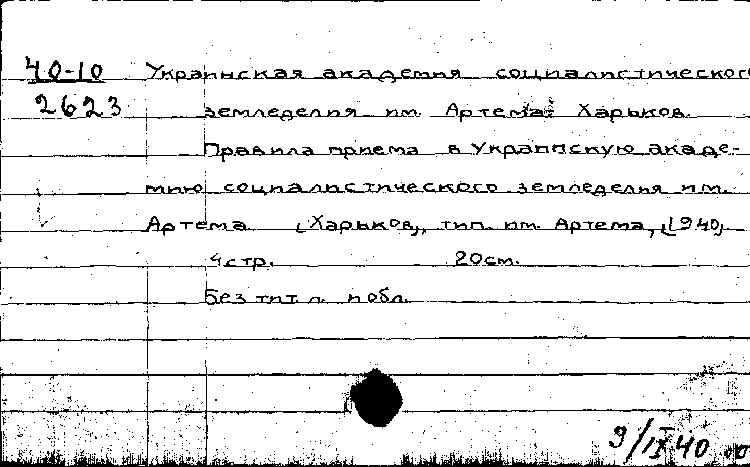 40-10 Украинская академия социалистического
2623 земледелия им. Артема. Харьков.
Правила приема в Украинскую акаде-
мию социалистического земледелия им.
Артема [Харьков], тип. им. Артема, [1940]
4стр. 20см.
Без тит л. и обл.
9/IX 40